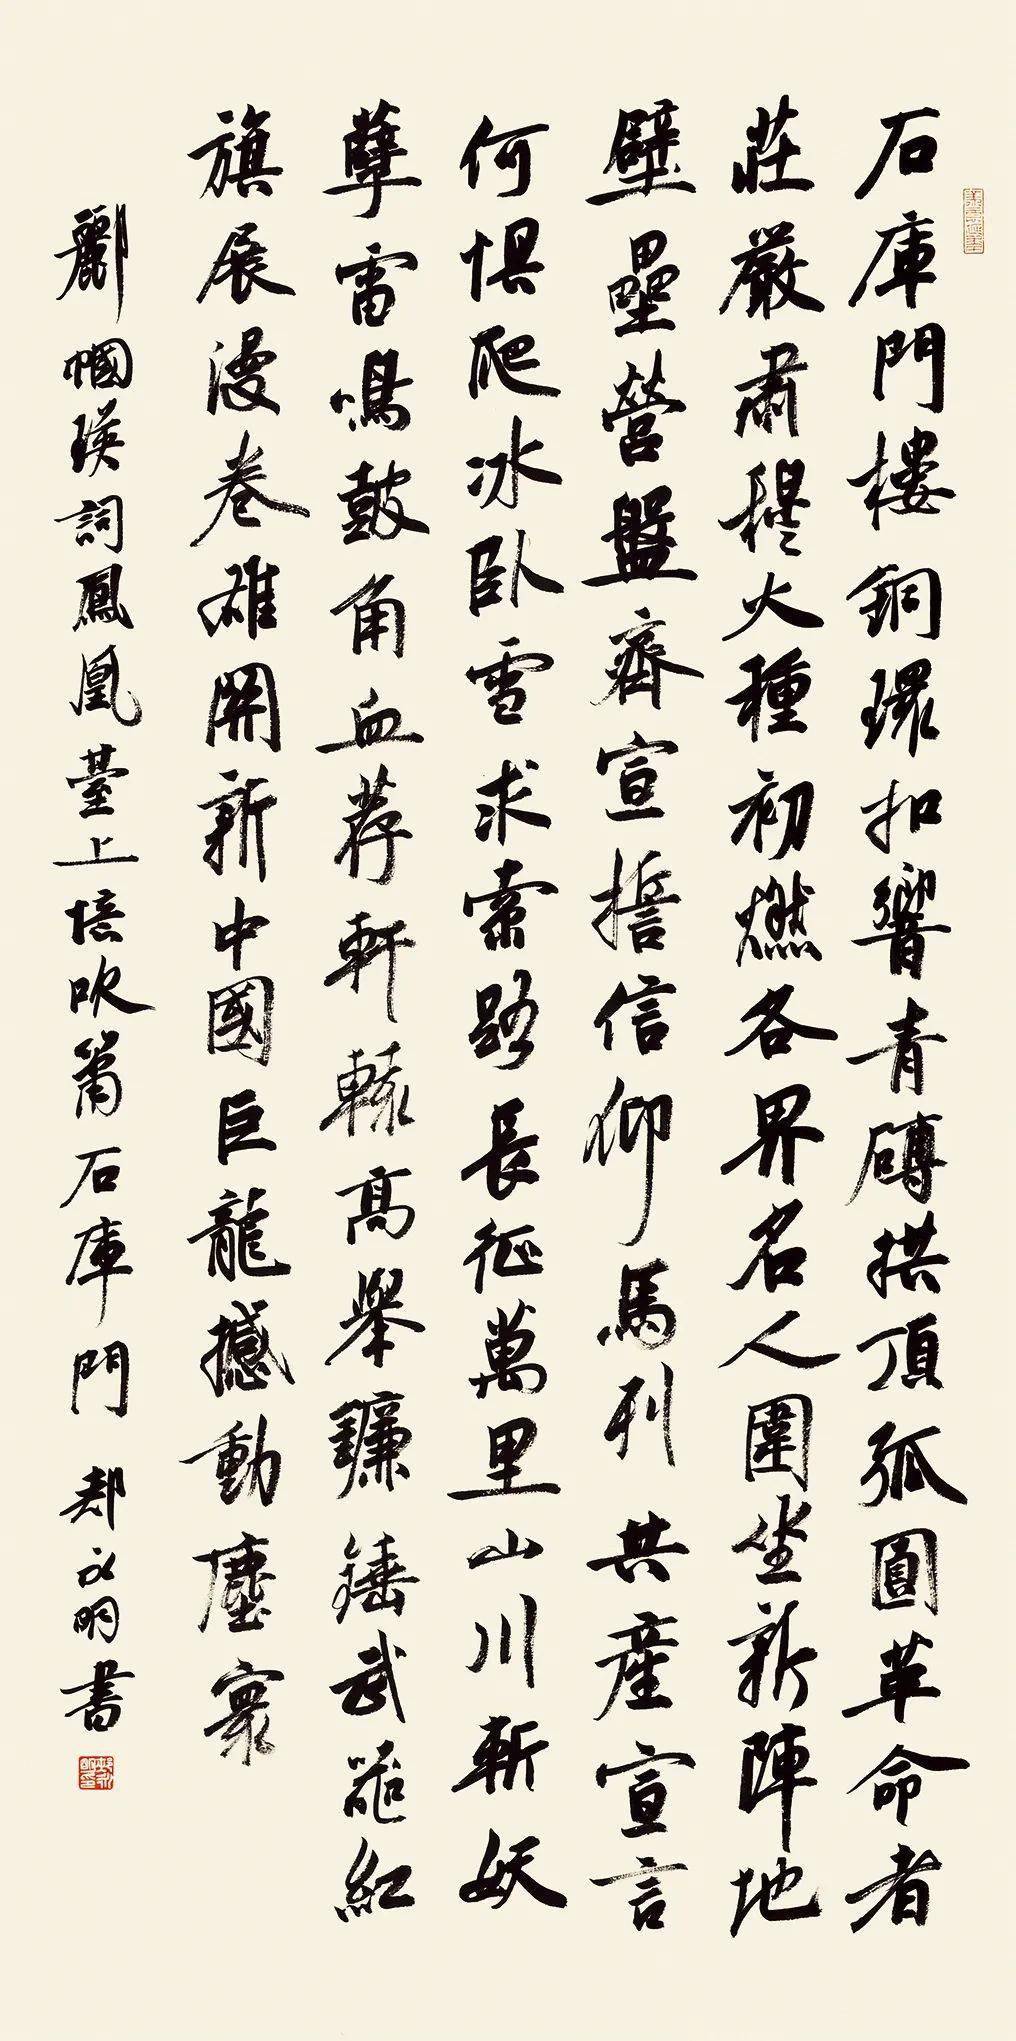 石庫門樓銅環扣響青磚拱頂弧圓革命者
莊嚴肅穆火種初燃各界名人圍坐新陣地
壁壘營盤齊宣誓信仰馬列共產宣言
何懼爬冰臥雪求索路長征萬里山川斬妖
孽雷鳴鼓角血荐軒轅高舉鐮錘武器紅
旗展漫卷雄開新中國巨龍撼動塵寰
酈幗瑛詞鳳凰臺上憶吹簫石庫門 郟永明書